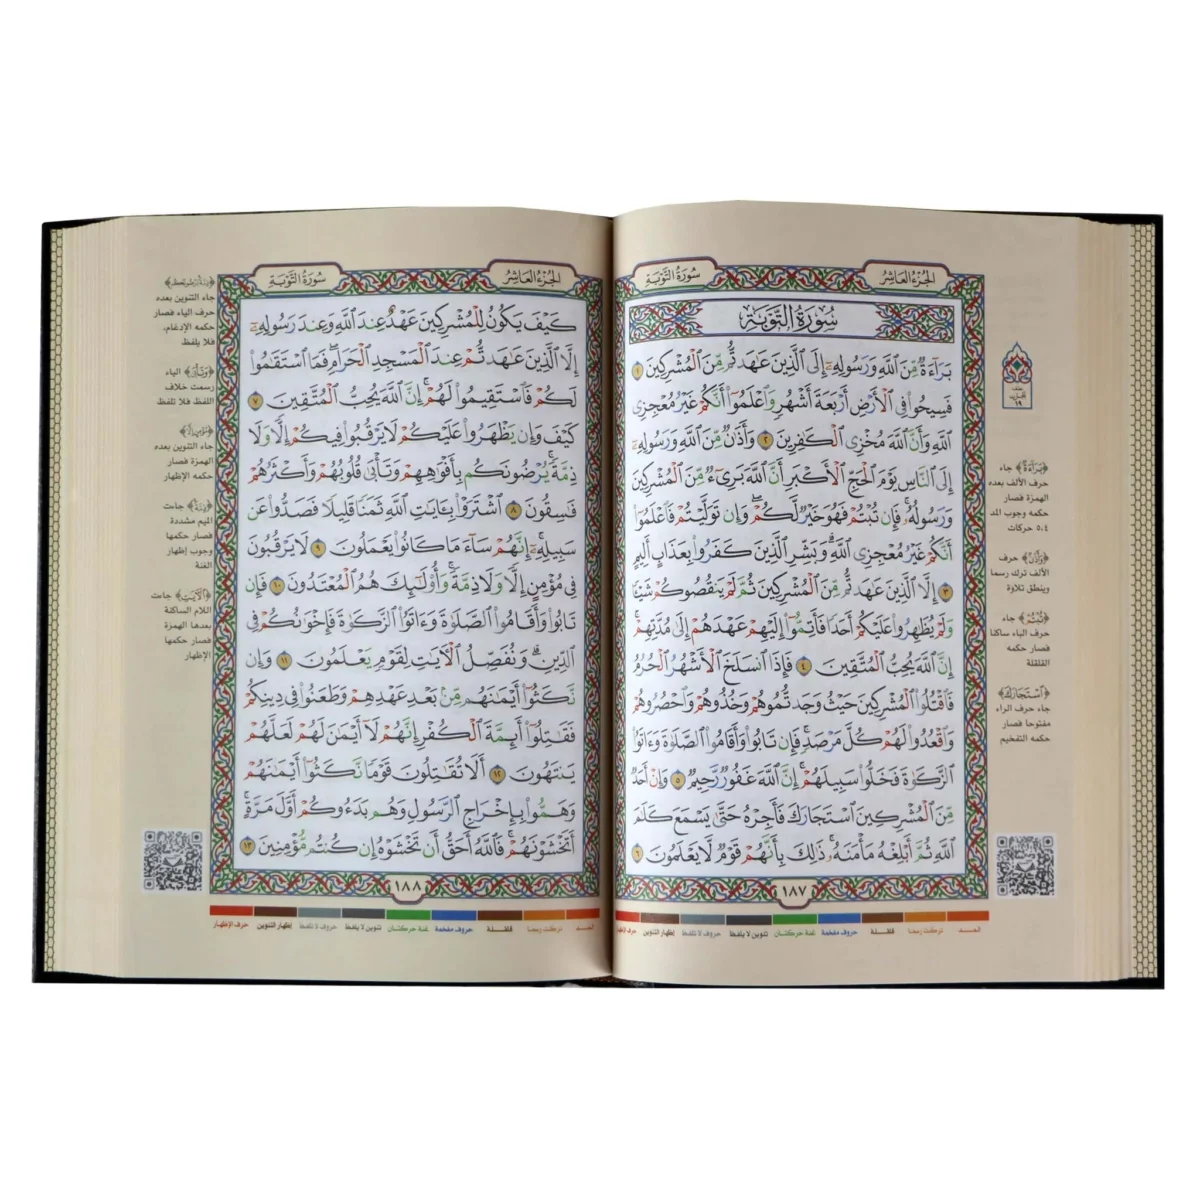 الجزء العاشر
سورة التوبة
سورة التوبة
براءة من الله ورسوله إلى الذين عاهدتم من المشركين ١
فسيحوا في الأرض أربعة أشهر واعلموا أنكم غير معجزي
الله وأن الله مخزي الكافرين ٢ وأذان من الله ورسوله
إلى الناس يوم الحج الأكبر أن الله بريء من المشركين
ورسوله فإن تبتم فهو خير لكم وإن توليتم فاعلموا
أنكم غير معجزي الله وبشر الذين كفروا بعذاب أليم
٣ إلا الذين عاهدتم من المشركين ثم لم ينقصوكم شيئا
ولم يظاهروا عليكم أحدا فأتموا إليهم عهدهم إلى مدتهم
إن الله يحب المتقين ٤ فإذا انسلخ الأشهر الحرم
فاقتلوا المشركين حيث وجدتموهم وخذوهم واحصروهم
واقعدوا لهم كل مرصد فإن تابوا وأقاموا الصلاة وءاتوا
الزكاة فخلوا سبيلهم إن الله غفور رحيم ٥ وإن أحد
من المشركين استجارك فأجره حتى يسمع كلم
الله ثم أبلغه مأمنه ذلك بأنهم قوم لا يعلمون ٦
١٨٧
﴿براءة﴾ جاء
حرف الألف بعده
الهمزة فصار
حكمه وجوب المد
٥،٤ حركات
﴿وأذن﴾ حرف
الألف ترك رسما
وينطق تلاوة
﴿تبتم﴾ جاء
حرف الباء ساكنا
فصار حكمه
القلقلة
﴿استجارك﴾
جاء حرف الراء
مفتوحا فصار
حكمه التفخيم
المد تركت رسما قلقلة حروف مفخمة غنة حركتان تنوين لا يلفظ حروف لا تلفظ إظهار التنوين حرف الإظهار
الجزء العاشر
سورة التوبة
كيف يكون للمشركين عهد عند الله وعند رسوله
إلا الذين عاهدتم عند المسجد الحرام فما استقاموا
لكم فاستقيموا لهم إن الله يحب المتقين ٧
كيف وإن يظهروا عليكم لا يرقبوا فيكم إلا ولا
ذمة يرضونكم بأفواههم وتأبى قلوبهم وأكثرهم
فاسقون ٨ اشتروا بآيات الله ثمنا قليلا فصدوا عن
سبيله إنهم ساء ما كانوا يعملون ٩ لا يرقبون
في مؤمن إلا ولا ذمة وأولئك هم المعتدون ١٠ فإن
تابوا وأقاموا الصلاة وءاتوا الزكاة فإخوانكم في
الدين ونفصل الآيات لقوم يعلمون ١١ وإن
نكثوا أيمانهم من بعد عهدهم وطعنوا في دينكم
فقاتلوا أئمة الكفر إنهم لا أيمان لهم لعلهم
ينتهون ١٢ ألا تقاتلون قوما نكثوا أيمانهم
وهموا بإخراج الرسول وهم بدءوكم أول مرة
أتخشونهم فالله أحق أن تخشوه إن كنتم مؤمنين ١٣
١٨٨
جاء التنوين بعده
حرف الياء فصار
حكمه الإدغام،
فلا يلفظ
﴿وتأبى﴾ الياء
رسمت خلاف
اللفظ فلا تلفظ
جاء التنوين بعده
الهمزة فصار
حكمه الإظهار
﴿ذمة﴾ جاءت
الميم مشددة
فصار حكمها
وجوب إظهار
الغنة
﴿الآيات﴾ جاءت
اللام الساكنة
بعدها الهمزة
فصار حكمها
الإظهار
المد تركت رسما قلقلة حروف مفخمة غنة حركتان تنوين لا يلفظ حروف لا تلفظ إظهار التنوين حرف الإظهار